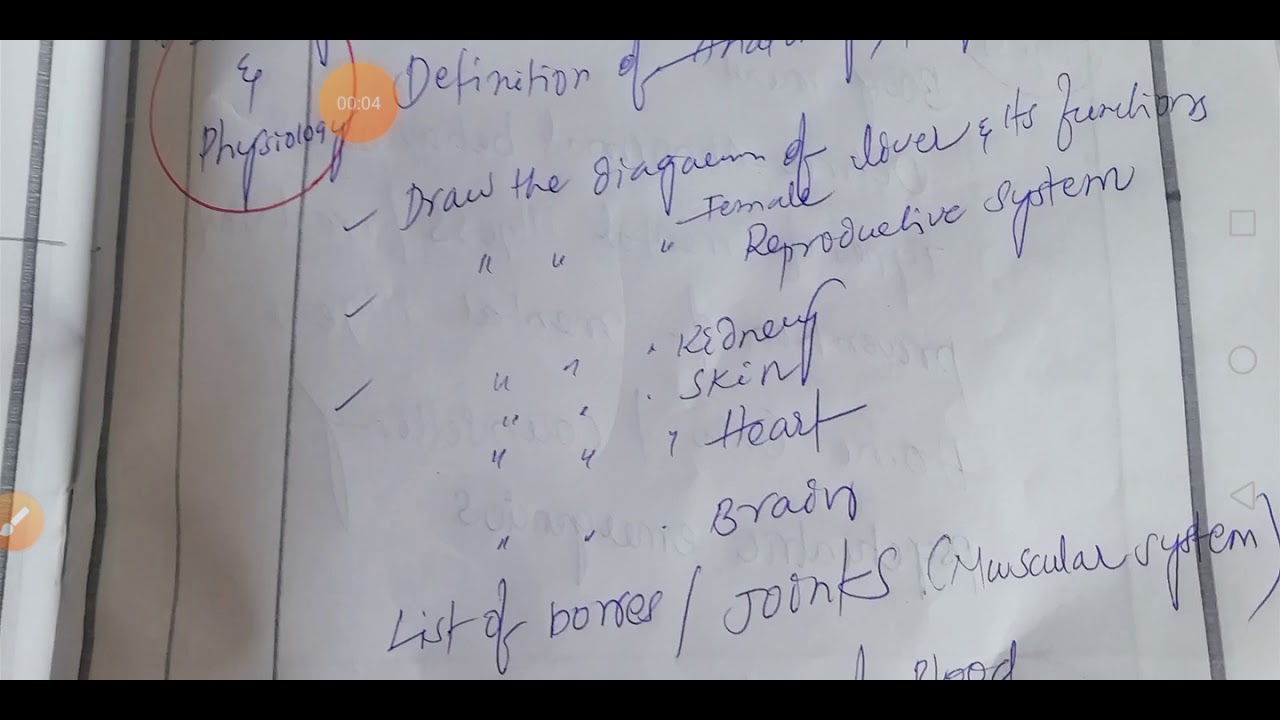 &
Physiology
00:04
Definition of Anat
Draw the diagaem of liver & its functions
" " " Female
Reproductive system
" " " Kidney
" " " Skin
" " " Heart
" " " Brain
List of bones / Joints (Muscular system)
Blood